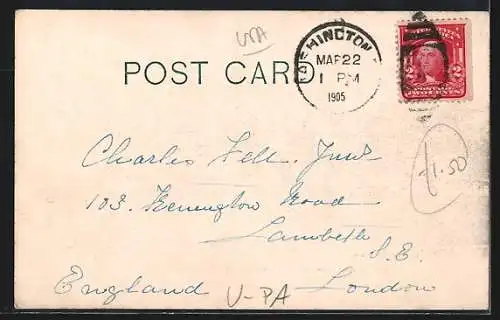 USA
POST CARD
WASHINGTON
MAR 22
1 PM
1905
2 2
TWO CENTS
Charles Fell. Junr
103. Kennington Road
Lambeth
S.E.
England London
1.50
U-PA